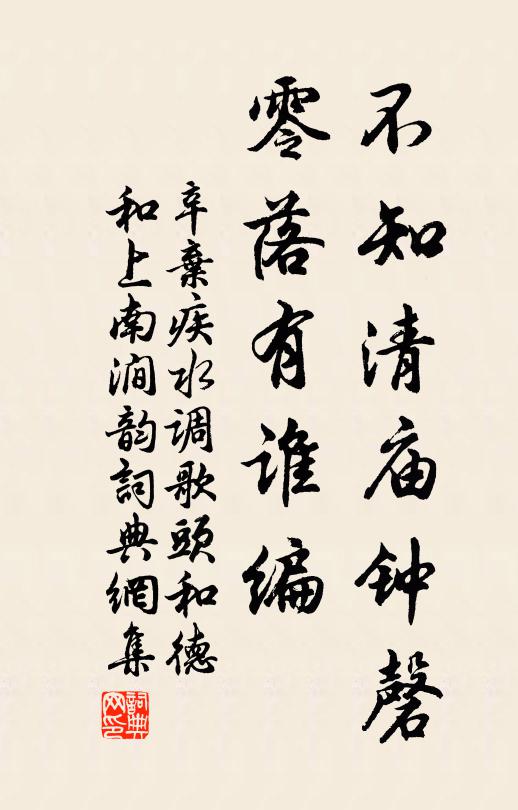 不知清庙钟磬
零落有谁编
辛棄疾水调歌頭和德
和上南涧韵詞典網集
詞典網印